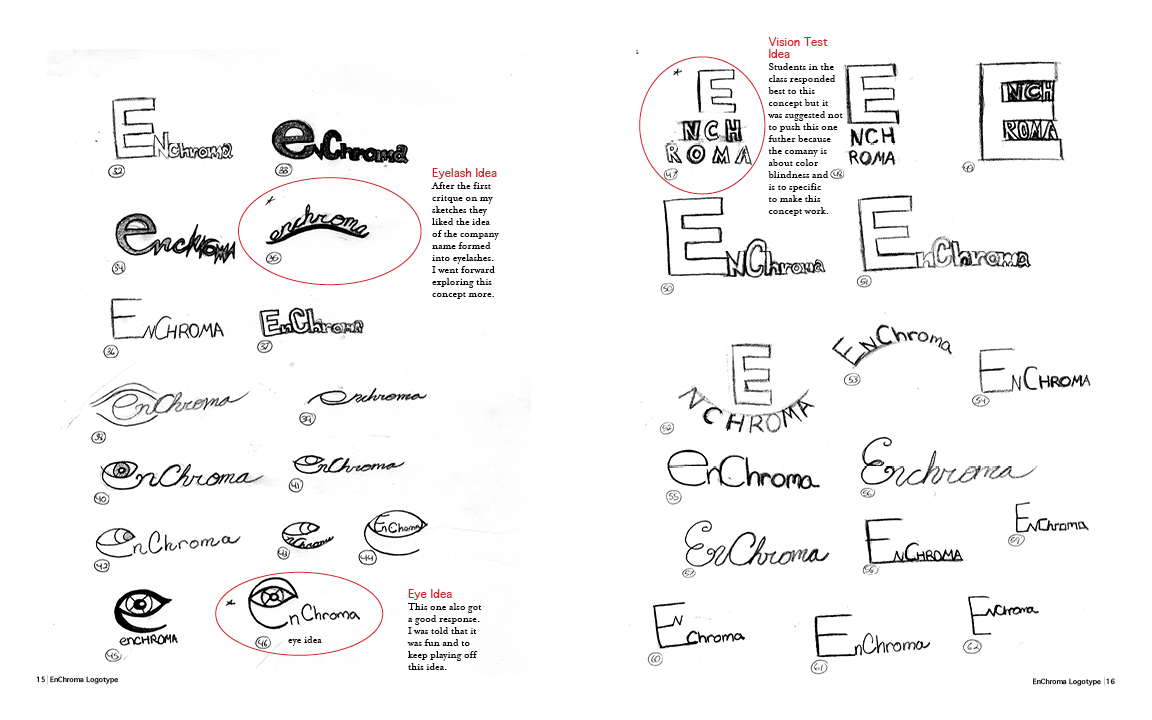 ENchroma
32
enChroma
33
Eyelash Idea
After the first
critque on my
sketches they
liked the idea
of the company
name formed
into eyelashes.
I went forward
exploring this
concept more.
enchroma
34
enchroma
35
ENCHROMA
36
EnChroma
37
enChroma
38
enchroma
39
enChroma
40
enChroma
41
enChroma
42
enChroma
43
EnChroma
44
enCHROMA
45
enChroma
46
eye idea
Eye Idea
This one also got
a good response.
I was told that it
was fun and to
keep playing off
this idea.
15 | EnChroma Logotype
E
NCH
ROMA
47
Vision Test
Idea
Students in the
class responded
best to this
concept but it
was suggested not
to push this one
futher because
the comany is
about color
blindness and
is to specific
to make this
concept work.
E
NCH
ROMA
48
E
NCH
ROMA
49
ENChroma
50
EnChroma
51
E
NCHROMA
52
ENChroma
53
ENCHROMA
54
enChroma
55
Enchroma
56
EnChroma
57
ENCHROMA
58
ENChroma
59
EN
Chroma
60
EnChroma
61
ENChroma
62
EnChroma Logotype | 16